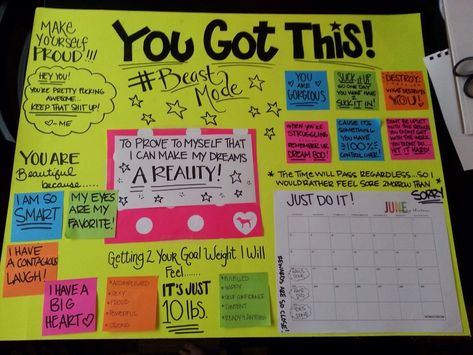 MAKE
YOURSELF
PROUD!!!
YOU GOT THIS!
#BEAST
MODE
HEY YOU!
YOU'RE PRETTY FUCKING
AWESOME...
KEEP THAT SHIT UP!
-ME
YOU ARE
GORGEOUS
SUCK IT UP
SO ONE DAY
YOU WON'T HAVE
SUCK IT IN!
DESTROY:
WHAT DESTROYS
YOU!
WHEN YOU'RE
STRUGGLING
REMEMBER UR
DREAM BOD!
CAUSE IT'S
SOMETHING
YOU HAVE
100%
CONTROL OVER!
DON'T BE UPSET
WITH THE
RESULTS YOU
DIDN'T GET
WITH THE WORK
YOU DIDN'T
DO...
TO PROVE TO MYSELF THAT
I CAN MAKE MY DREAMS
A REALITY!
YOU ARE
Beautiful
because......
I AM SO
SMART
MY EYES
ARE MY
FAVORITE!
I HAVE
A CONTAGIOUS
LAUGH!
I HAVE A
BIG
HEART
* THE TIME WILL PASS REGARDLESS...SO I
WOULD RATHER FEEL SORE 2MOROW THAN
SORRY
Getting 2 Your Goal Weight I Will
Feel.......
*ACCOMPLISHED
*SEXY
*PROUD
*POWERFUL
*STRONG
IT'S JUST
10 lbs.
*FULFILLED
*HAPPY
*SELF CONFIDENCE
*CONTENT
JUST DO IT!
JUNE
REWARDS ARE SO CLOSE!